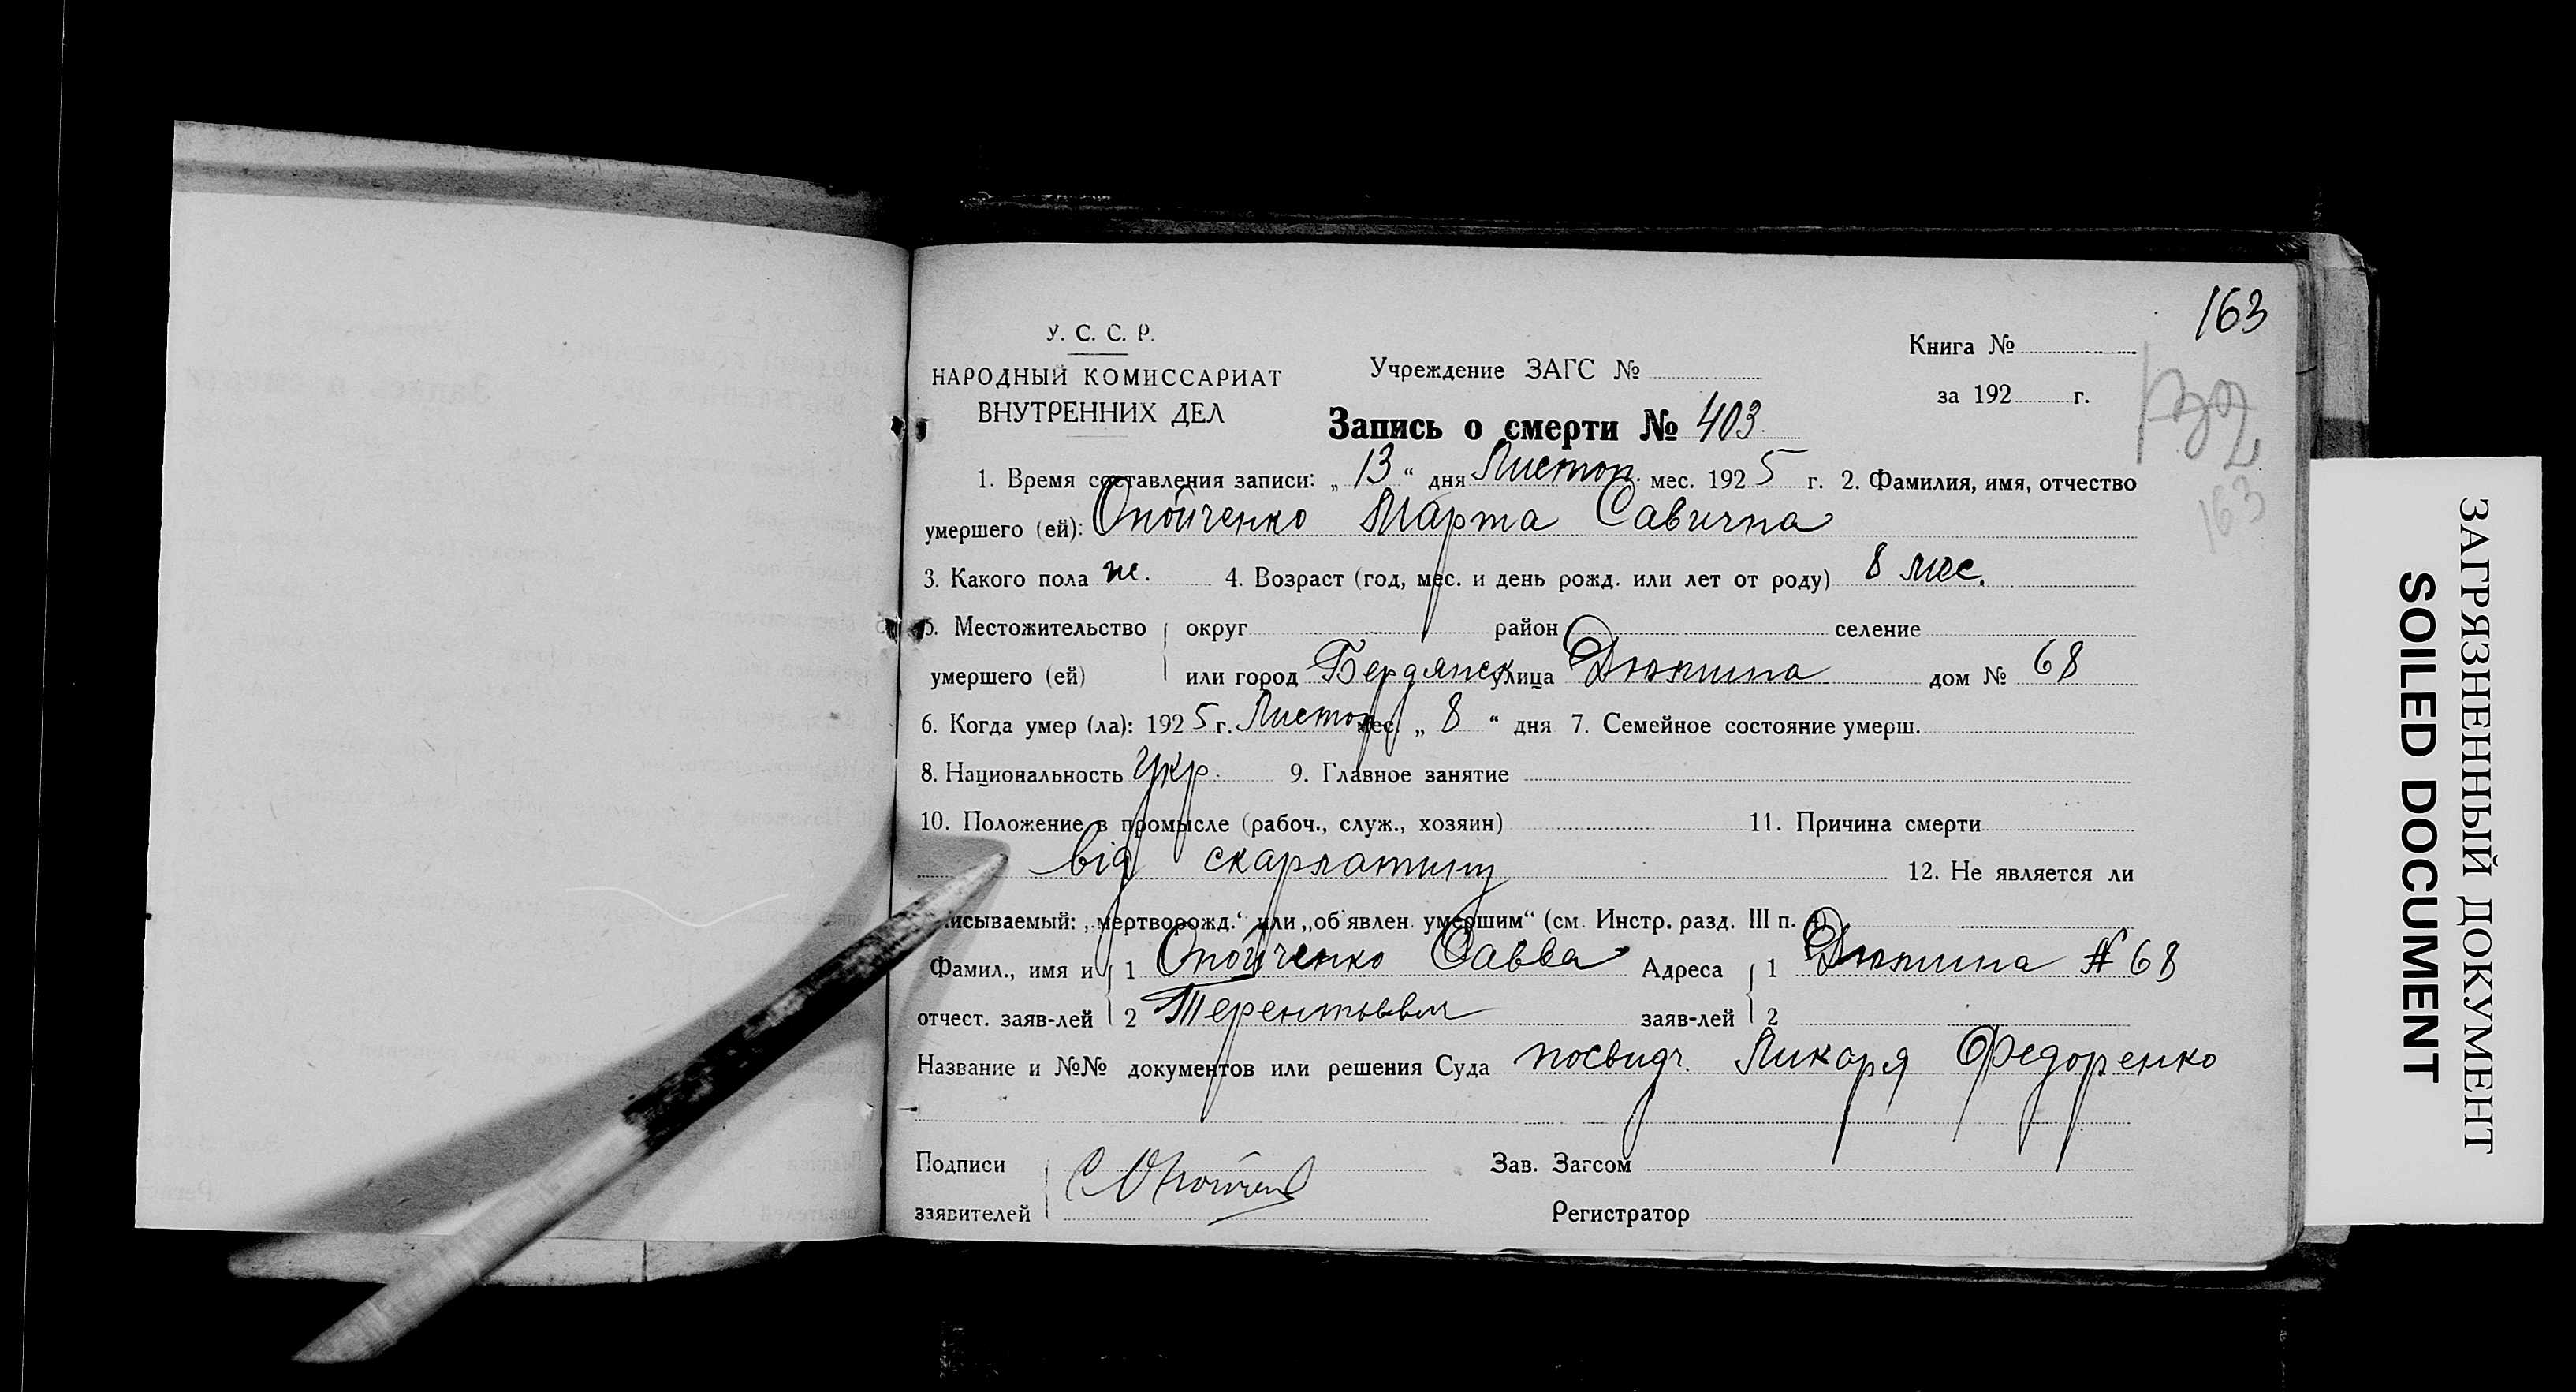 163
У. С. С. Р.
НАРОДНЫЙ КОМИССАРИАТ
ВНУТРЕННИХ ДЕЛ
Учреждение ЗАГС №
Книга №
за 192 г.
Запись о смерти № 403
1. Время составления записи: „ 13 “ дня Листоп. мес. 1925 г. 2. Фамилия, имя, отчество
умершего (ей): Опойченко Марта Савична
3. Какого пола ж. 4. Возраст (год, мес. и день рожд. или лет от роду) 8 мес.
5. Местожительство округ район селение
умершего (ей) или город Бердянск улица Дюмина дом № 68
6. Когда умер (ла): 1925 г. Листоп мес. „ 8 “ дня 7. Семейное состояние умерш.
8. Национальность Укр. 9. Главное занятие
10. Положение в промысле (рабоч., служ., хозяин) 11. Причина смерти
від скарлатину 12. Не является ли
исываемый: „мертворожд.“ или „об'явлен умершим“ (см. Инстр. разд. III п. 4)
Фамил., имя и 1 Опойченко Савва Адреса 1 Дюмина № 68
отчест. заяв-лей 2 Терентьевич заяв-лей 2
Название и №№ документов или решения Суда посвидч. Ликаря Федоренко
Подписи Зав. Загсом
заявителей Регистратор
163
ЗАГРЯЗНЕННЫЙ ДОКУМЕНТ
SOILED DOCUMENT